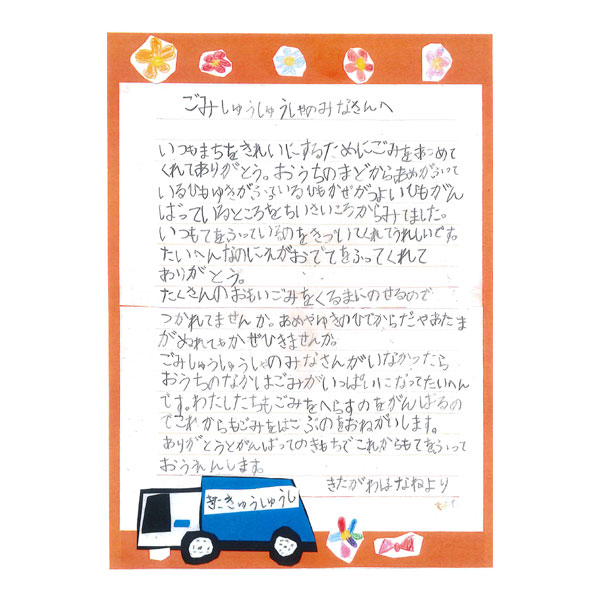 ごみしゅうしゅうしゃのみなさんへ
いつもまちをきれいにするためにごみをまとめて
くれてありがとう。おうちのまどからあめがふって
いるひもゆきがふっているひもかぜがつよいひもがん
ばっているところをちいさいころからみてました。
いつもてをふっているのをきづいてくれてうれしいです。
たいへんなのにえがおでてをふってくれて
ありがとう。
たくさんのおもいごみをくるまにのせるので
つかれてませんか。あめやゆきのひでからだやあたま
がぬれてもかぜひきませんか。
ごみしゅうしゅうしゃのみなさんがいなかったら
おうちのなかはごみがいっぱいになってたいへん
です。わたしたちもごみをへらすのをがんばるの
でこれからもごみをはこぶのをおねがいします。
ありがとうとがんばってのきもちでこれからもてをふって
おうえんします。
きたがわはなねより
きゅうしゅうし